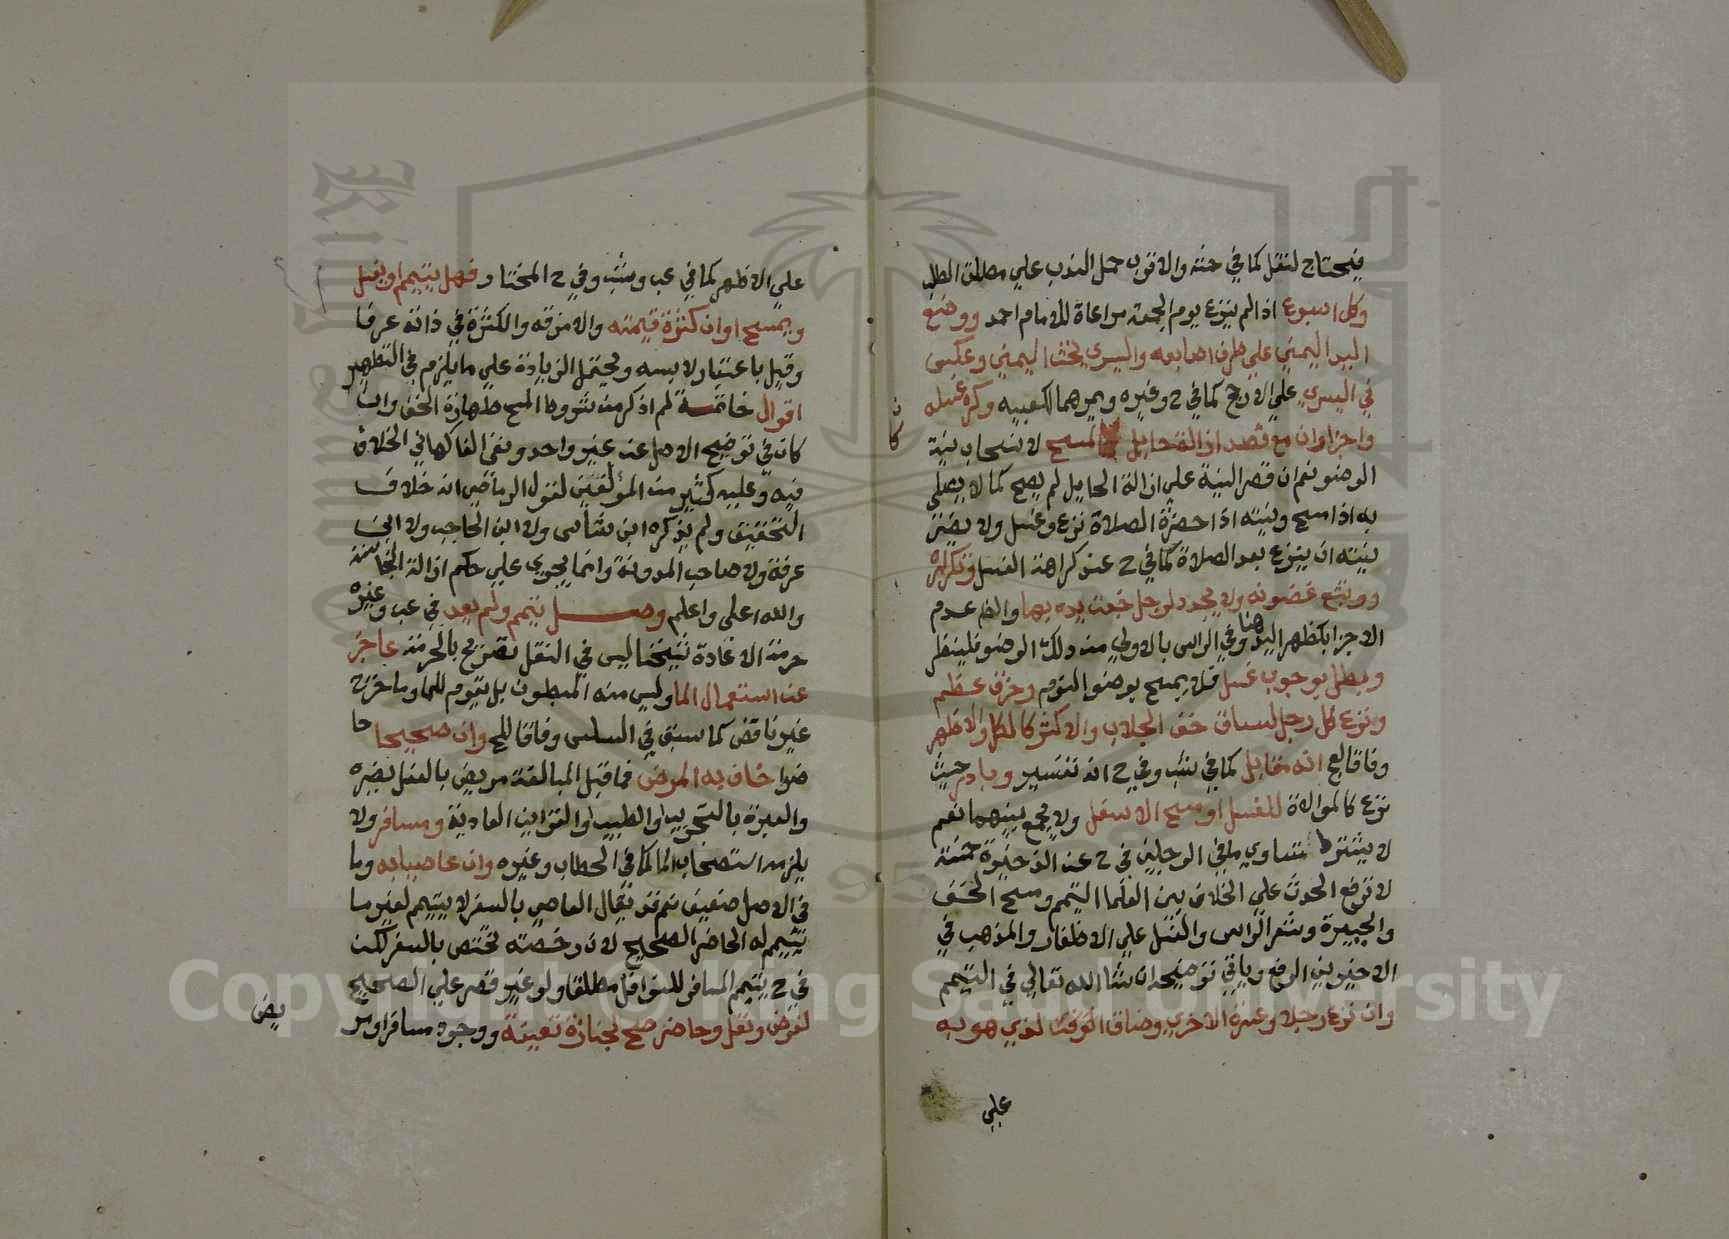 فيحتاج لنقل كما في حشه والاقرب حمل الندب علي مطلق الطلب
وكل اسبوع اذا لم ينزع يوم الجمعة مراعاة للامام احمد ووضع
اليد اليمني علي طرف اصابعه واليسري تحت اليمني وعكس
في اليسري علي الارجح كما في ح وغيره ويمرهما لكعبيه وكره غسله
واجزا وان مع قصد ازالة حايل المسح لانسحاب نية
الوضو نعم ان قصر النية علي ازالة الحايل لم يصح كما لا يصلي
به اذا مسح ونيته اذا حضرة الصلاة نزع وغسل ولا يضر
نيته ان ينزع بعد الصلاة كما في ح عند كراهة الغسل وتكراره
وتتبع غضونه ولا يجدد لرجل جفت يده بها والظ عدم
الاجزا بكظهر اليد هنا وفي الراس بالاولي من دلك الوضو فلينظر
وبطل بوجوب غسل فلا يمسح بوضو النوم وخرق عظم
ونزع كل رجل لساق خف الجلاب والاكثر كالكل والاظهر
وفاقا لعج انه مقابل كما في شب وفي ح انه تفسير وبادر حيث
نزع كالموالاة للغسل او مسح الاسفل ولا يجمع بينهما نعم
لا يشترط تساوي ما في الرجلين في ح عن الذخيرة خمسة
لا ترفع الحدث علي الخلاف بين العلما التيمم ومسح الخف
والجبيرة وشعر الراس والغسل علي الاظفار والمذهب في
الاخيرين الرفع وياتي توضيحه ان شا الله تعالي في التيمم
وان نزع رجلا وعسرة الاخري وضاق الوقت الذي هو به
علي
كان
علي الاظهر كما في عب وشب وفي ح المختار فهل يتيمم او يغسل
ويمسح او ان كثرة قيمته والا مزقه والكثرة في ذاته عرفا
وقيل باعتبار لابسه ويحتمل الزيادة علي ما يلزم في التطهير
اقوال خاتمة لم اذكر من شروط المسح طهارة الخف وان
كان في توضيح الاصل عن غير واحد ونفي الفاكهاني الخلاف
فيه وعليه كثير من المؤلفين لقول الرماصي انه خلاف
التحقيق ولم يذكره ابن شاس ولا ابن الحاجب ولا ابن
عرفة ولا صاحب المدونة وانما يجري علي حكم ازالة النجاسة
والله اعلي واعلم وصل تيمم ولم يعد في عب وغيره
حرمة الاعادة شيخنا ليس في النقل تصريح بالحرمة عاجز
عن استعمال الما وليس منه المبطون بل يتوم للما وما خرج
غير ناقض كما سبق في السلس وفاقا للح وان صحيحا حا
ضرا خاف به المرض فما قبل المبالغة مريض بالفعل يضره
والعبرة بالتجريب او الطبيب او القراين العادية ومسافر ولا
يلزمه استصحاب الما كما في الحطاب وغيره وان عاصيا به وما
في الاصل ضعيف نعم قد يقال العاصي بالسفر لا يتيمم لغير ما
يتيمم له الحاضر الصحيح لان رخصته تختص بالسفر لكن
في ح يتيمم المسافر للنوافل مطلقا ولو غير قصر علي الصحيح
لفرض ونفل وحاضر صح لجنازة تعينة ووجود مسافر او مر
يض
Copyright © King Saud University
King Saud University
1957